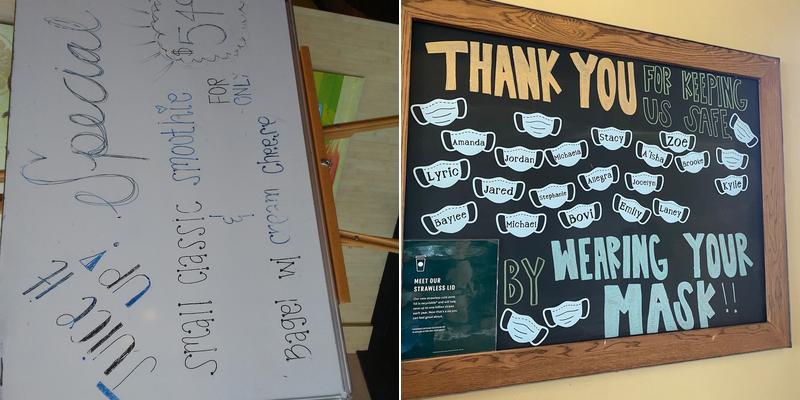 Juice It
Up. Special
small classic smoothie
&
Bagel w/ cream cheese
FOR
ONLY
$5
THANK YOU FOR KEEPING
US SAFE
Amanda
Jordan
Michaela
Stacy
Zoë
A'isha
Brooke
Lyric
Jared
Stephanie
Allegra
Jocelyn
Kylie
Baylee
Michael
Bovi
Emily
Laney
BY WEARING YOUR
MASK!!
MEET OUR
STRAWLESS LID